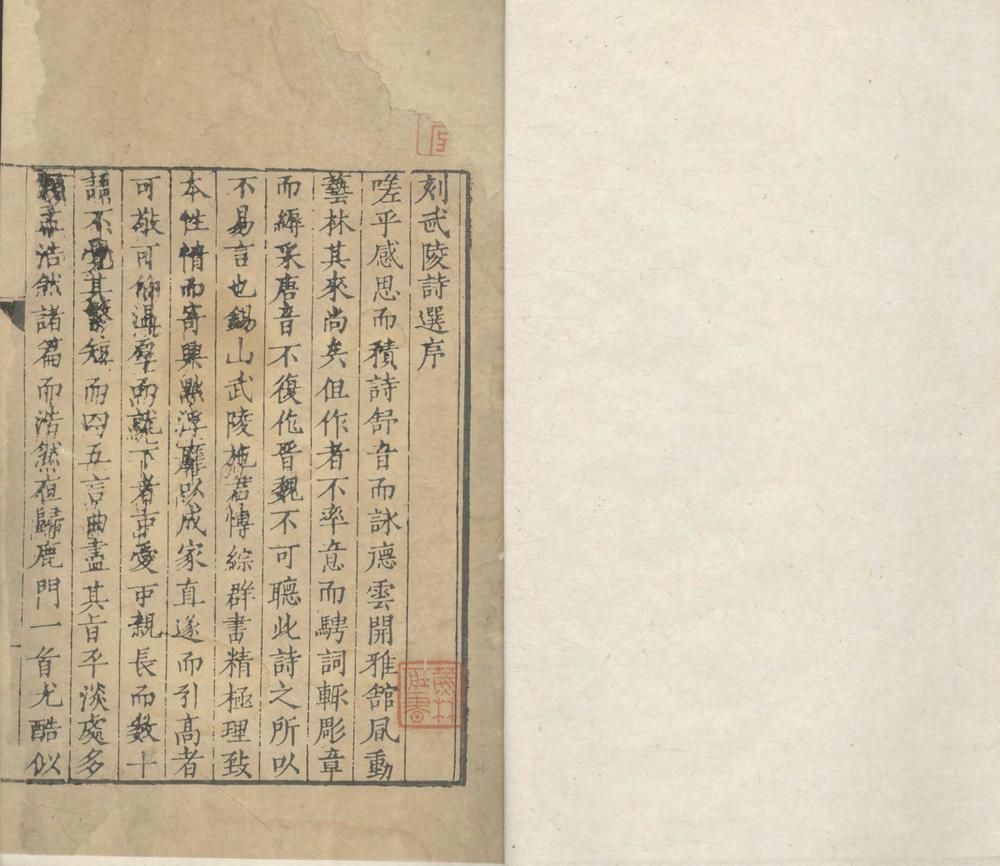 刻武陵詩選序
嗟乎感思而積詩舒音而詠德雲開雅舘風動
藝林其來尚矣但作者不率意而騁詞輒彫章
而縟采唐音不復作晉魏不可聽此詩之所以
不易言也錫山武陵施君愽綜群書精極理致
本性情而寄興黜浮靡以成家直遂而引高者
可敬可仰温羣而就下者可愛可親長而数十
韻不覺其繁短而四五言曲盡其旨平淡處多
類孟浩然諸篇而浩然夜歸鹿門一首尤酷似